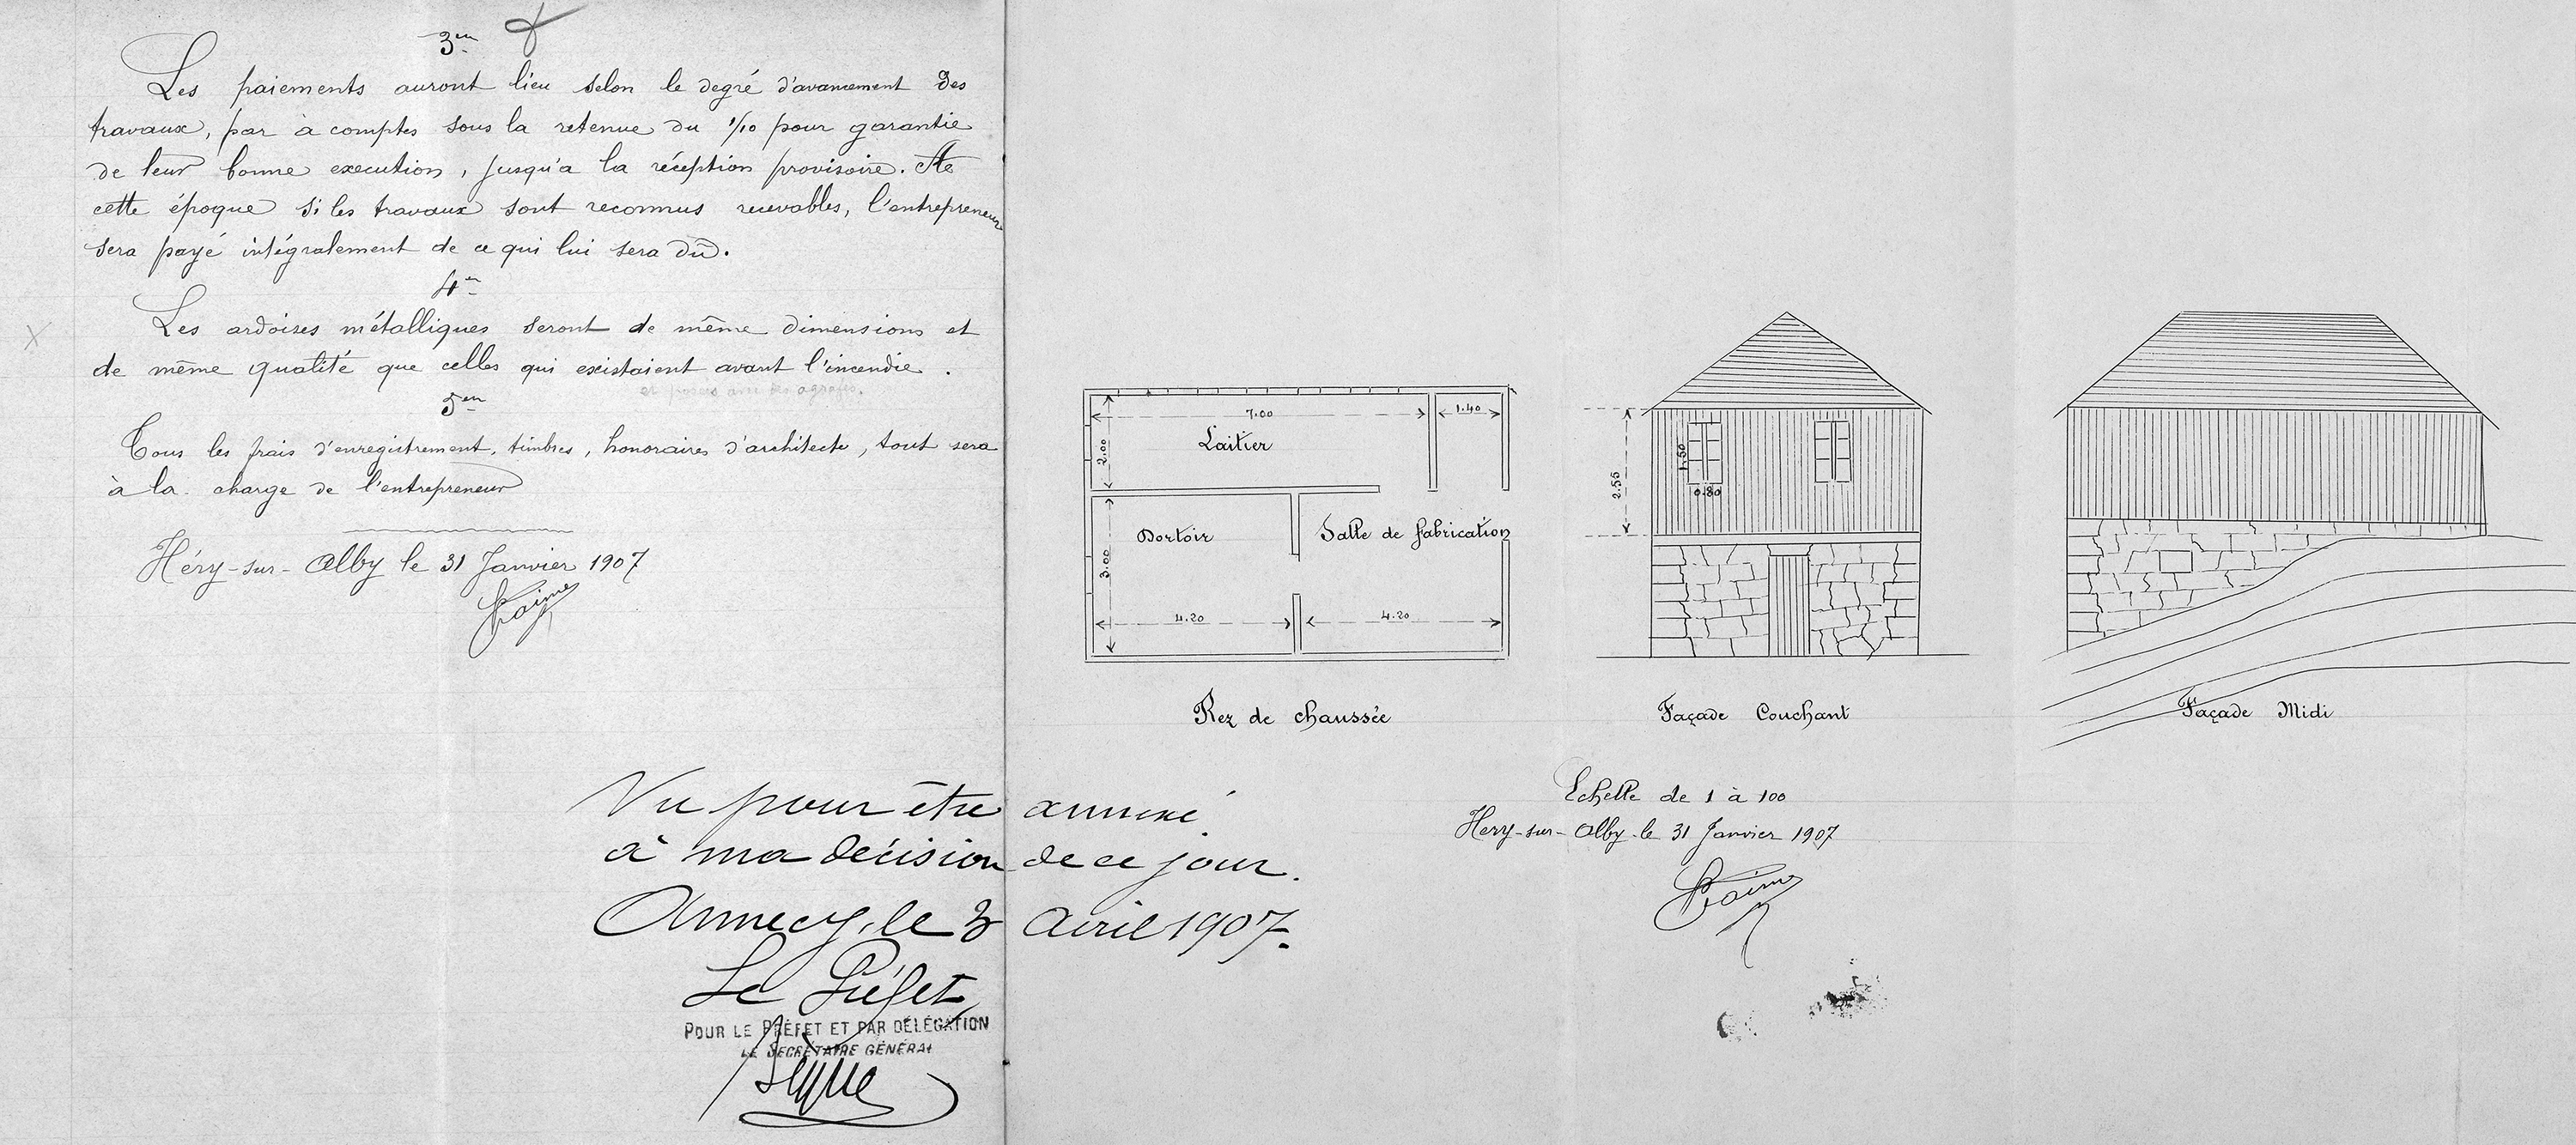 3en
Les paiements auront lieu selon le degré d'avancement des
travaux, par à comptes sous la retenue du 1/10 pour garantie
de leur bonne execution, jusqu'a la réception provisoire. A
cette époque si les travaux sont reconnus recevables, l'entrepreneur
sera payé intégralement de ce qui lui sera dû.
4en
Les ardoises métalliques seront de même dimensions et
de même qualité que celles qui existaient avant l'incendie.
et posées avec des agraffes.
5en
Tous les frais d'enregistrement, timbres, honoraires d'architecte, tout sera
à la charge de l'entrepreneur
Héry-sur-Alby le 31 Janvier 1907
Vu pour être annexé
à ma décision de ce jour.
Annecy, le 3 Avril 1907.
Le Préfet
POUR LE PRÉFET ET PAR DÉLÉGATION
LE SECRÉTAIRE GÉNÉRAL
7.00
1.40
2.00
Laitier
Dortoir
Salle de fabrication
3.00
4.20
4.20
Rez de chaussée
2.55
1.50
0.80
Façade Couchant
Façade Midi
Echelle de 1 à 100
Hery-sur-Alby le 31 Janvier 1907